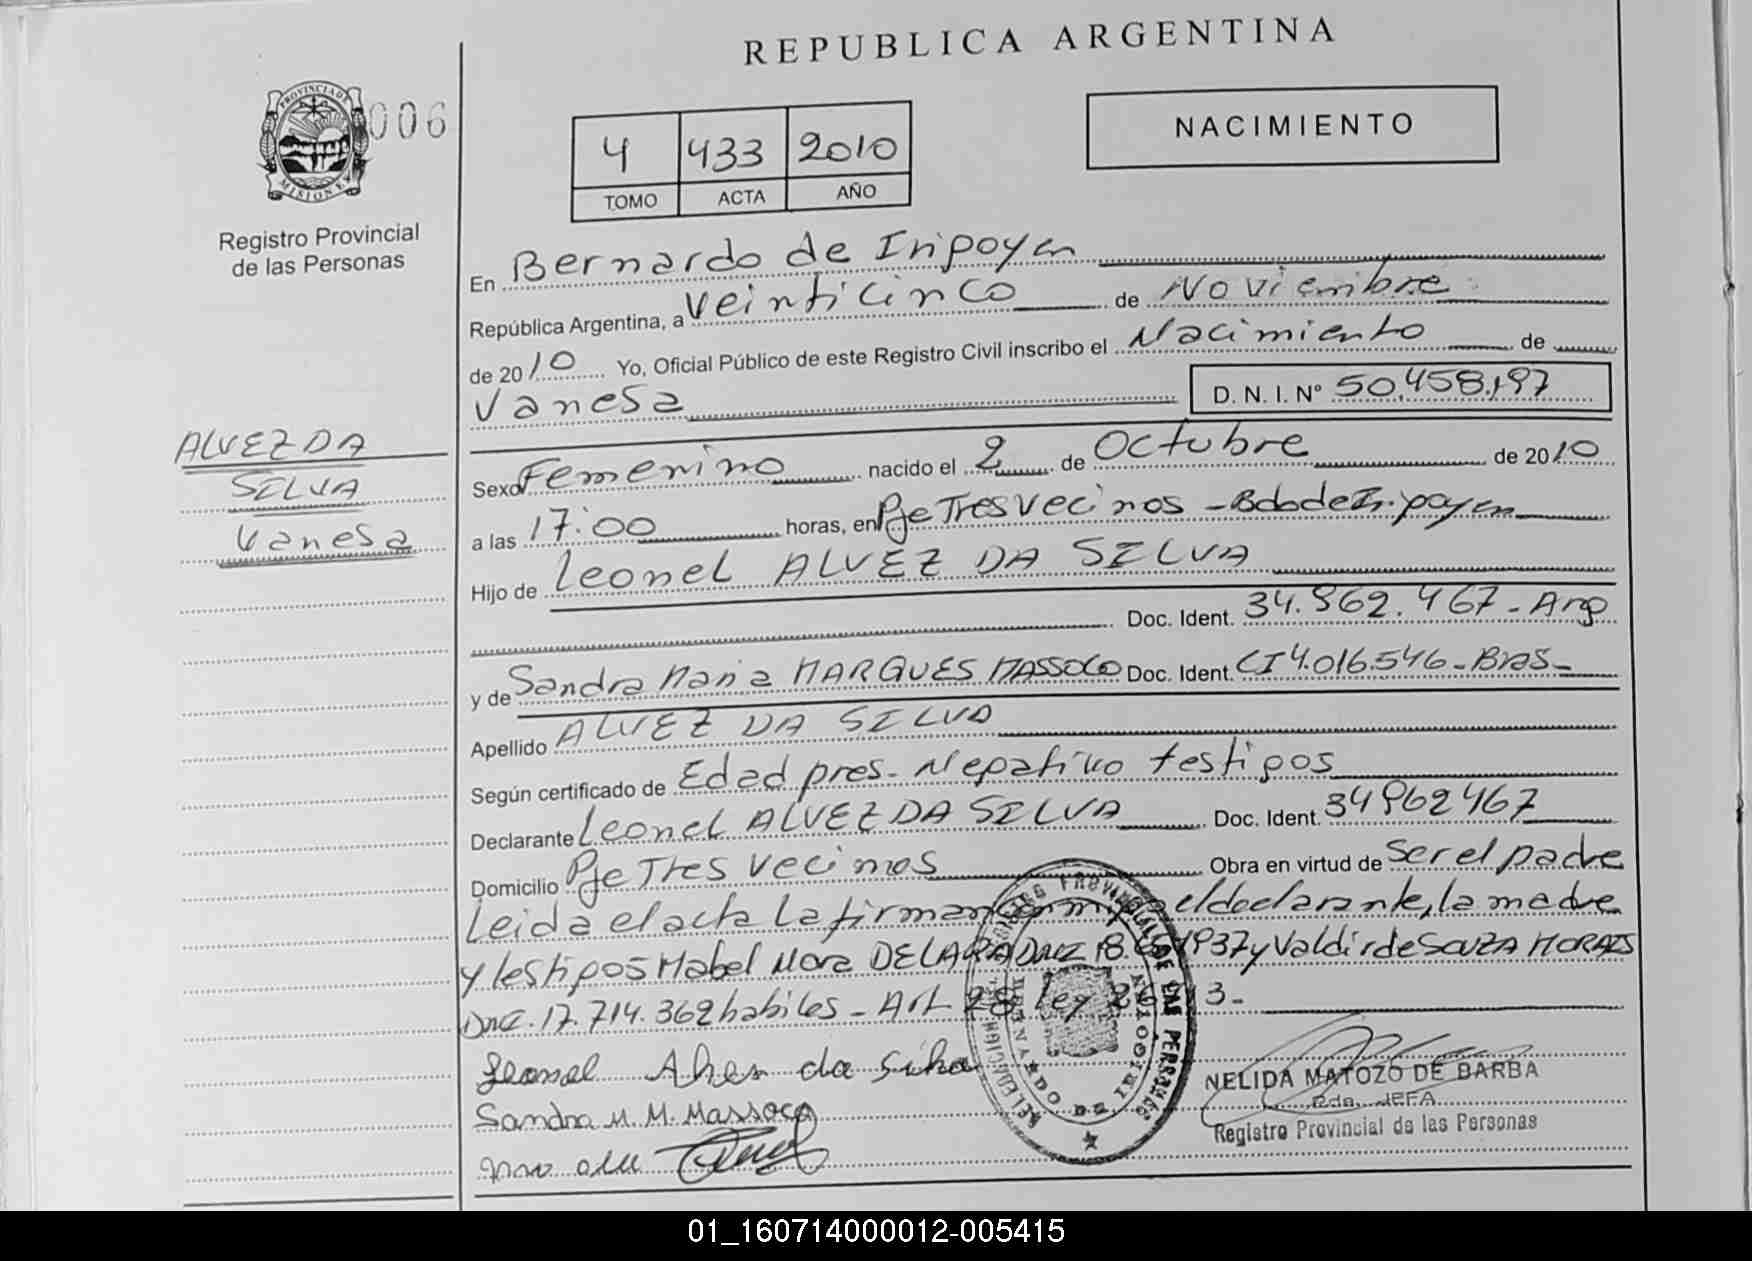 REPUBLICA ARGENTINA
PROVINCIA DE MISIONES
006
Registro Provincial
de las Personas
4 433 2010
TOMO ACTA AÑO
NACIMIENTO
En Bernardo de Irigoyen
República Argentina, a Veinticinco de Noviembre
de 2010 Yo, Oficial Público de este Registro Civil inscribo el Nacimiento de
Vanesa D. N. I. Nº 50.458.197
ALVEZ DA
SILVA
Vanesa
Sexo Femenino nacido el 2 de Octubre de 2010
a las 17:00 horas, en Pje Tres Vecinos - Bdo de I. goyen
Hijo de Leonel ALVEZ DA SILVA
Doc. Ident. 34.962.467 - Arg
y de Sandra Maria MARQUES MASSOCO Doc. Ident. CI 4.016.546 - Bras -
Apellido ALVEZ DA SILVA
Según certificado de Edad pres. Negativo testigos
Declarante Leonel ALVEZ DA SILVA Doc. Ident. 34962467
Domicilio Pje Tres Vecinos Obra en virtud de Ser el padre
Leida el acta La firman el declarante, la madre
y testigos Mabel DE LARA DNI 18. 937 y Valdir de SOUZA MORAIS
DNI. 17.714.362 habiles - Art 28 Ley 3.-
Leonel Alves da Silva
Sandra M. M. Massoco
NELIDA MATOZO DE BARBA
2da. JEFA
Registro Provincial de las Personas
REGISTRO PROVINCIAL DE LAS PERSONAS
DELEGACION
BERNARDO DE IRIGOYEN
01_160714000012-005415